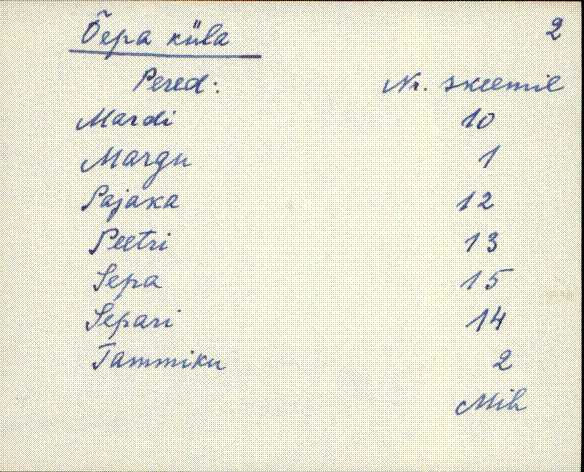 Õepa küla 2
Pered: Nr. skeemil
Mardi 10
Margu 1
Pajaka 12
Peetri 13
Sepa 15
Separi 14
Tammiku 2
Mih